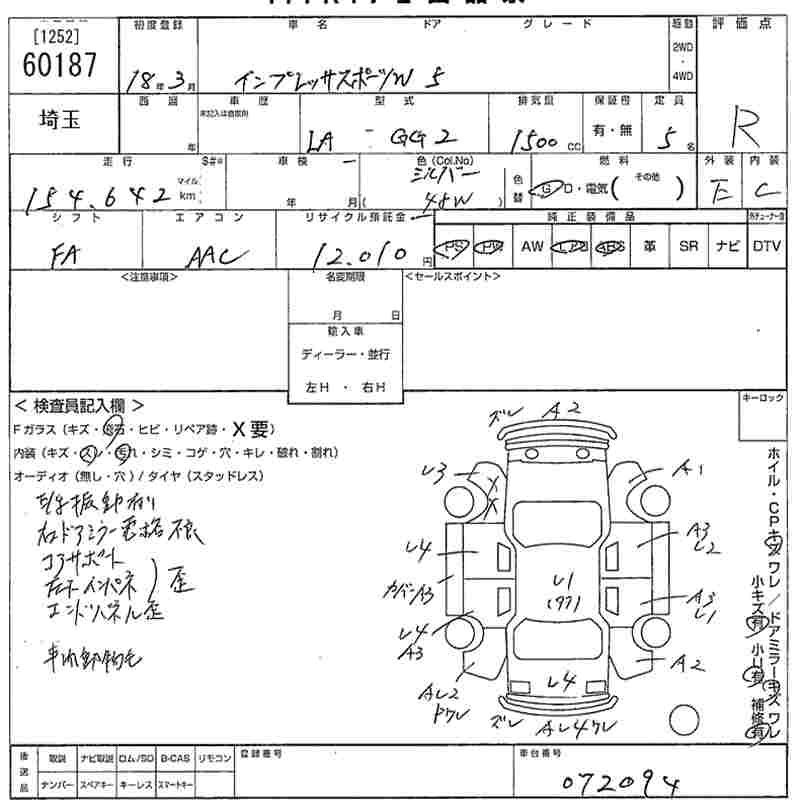 [1252]
60187
埼玉
初度登録 車名 ドア グレード 駆動 評価点
18年3月 インプレッサスポーツW 5
2WD
・
4WD
R
西暦 車歴 型式 排気量 保証書 定員
年 未記入は自家用 LA - GG2 1500 CC 有・無 5名
走行 S#※ 車検 色(Col.No) 燃料 外装 内装
154,642 マイル km
年 月 シルバー
( 48W ) 色替 G D・電気( その他 ) E C
シフト エアコン リサイクル預託金 純正装備品
FA AAC 12,010円 PS PW AW ABS 革 SR ナビ DTV
<注意事項> 名変期限 <セールスポイント>
月 日
輸入車
ディーラー・並行
左H ・ 右H
<検査員記入欄> キーロック
Fガラス(キズ・飛石・ヒビ・リペア跡・X要)
内装(キズ・スレ・汚れ・シミ・コゲ・穴・キレ・破れ・割れ)
オーディオ(無し・穴)/タイヤ(スタッドレス)
右ドアミラー電格不良
コアサポート
インパネ ) 歪
エンドパネル歪
ズレ A2
レ3 A1
X
X
レ4 A3
レ2
カバーA3 レ1
(ワワ) A3
レ1
レ4
A3
A2
レ4
AレZ
ドワレ
ズレ Aレ4ワレ
ホイル・CPキズワレ/ドアミラーキズワレ
小キズ有 小U有 補修有
後送品 取説 ナビ取説 ロム/SD B-CAS リモコン
ナンバー スペアキー キーレス スマートキー
登録番号
車台番号
072094